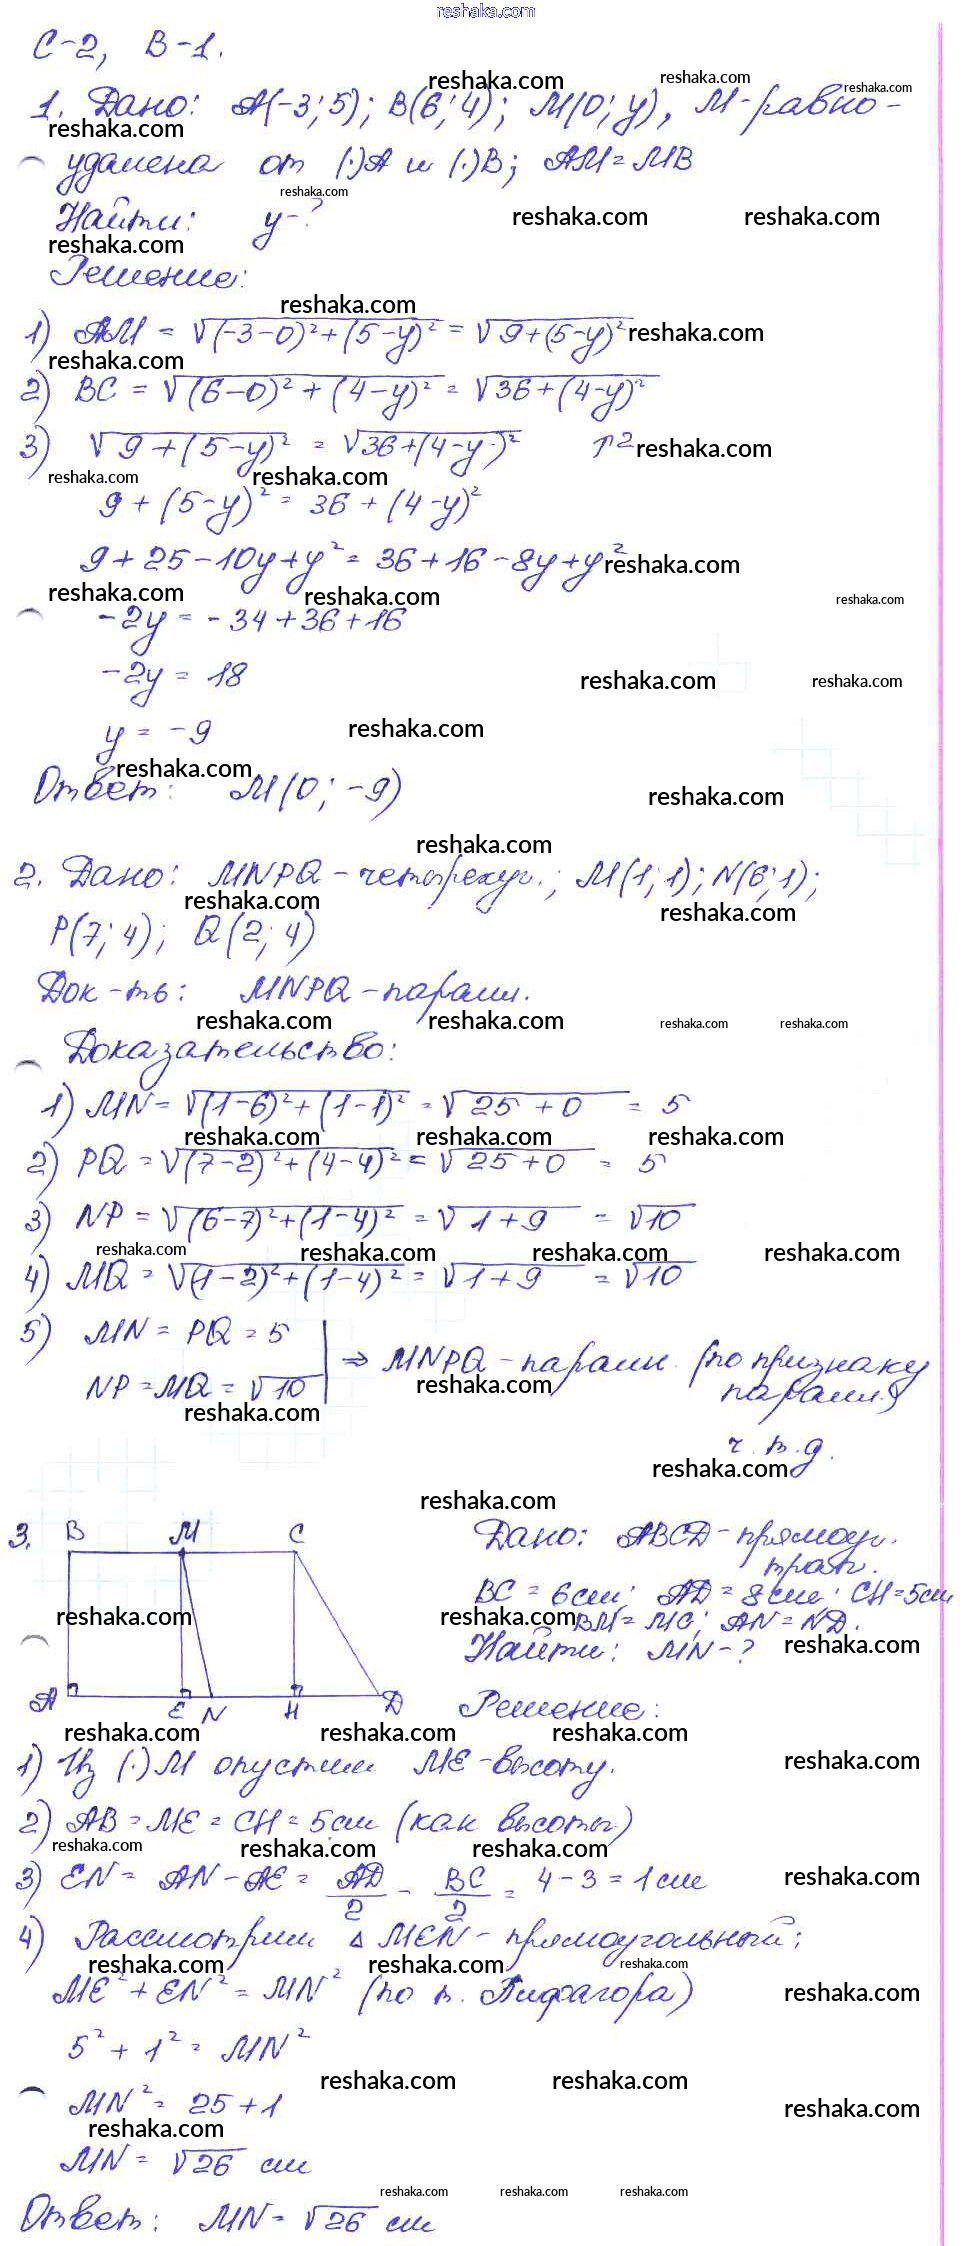 reshaka.com
С-2, В-1.
1. Дано: A(-3; 5); B(6; 4); M(0; y), M-равно-
удалена от (·)A и (·)B; AM = MB
Найти: y-?
Решение:
1) AM = √((-3-0)² + (5-y)²) = √(9+(5-y)²)
2) BC = √((6-0)² + (4-y)²) = √(36+(4-y)²)
3) √(9+(5-y)²) = √(36+(4-y)²) ↑2
9 + (5-y)² = 36 + (4-y)²
9 + 25 - 10y + y² = 36 + 16 - 8y + y²
-2y = -34 + 36 + 16
-2y = 18
y = -9
Ответ: M(0; -9)
2. Дано: MNPQ - четырехуг.; M(1; 1); N(6; 1);
P(7; 4); Q(2; 4)
Док-ть: MNPQ - паралл.
Доказательство:
1) MN = √((1-6)² + (1-1)²) = √(25+0) = 5
2) PQ = √((7-2)² + (4-4)²) = √(25+0) = 5
3) NP = √((6-7)² + (1-4)²) = √(1+9) = √10
4) MQ = √((1-2)² + (1-4)²) = √(1+9) = √10
5) MN = PQ = 5
NP = MQ = √10
⇒ MNPQ - паралл. (по признаку
паралл.)
ч.т.д.
3. B M C
A E N H D
Дано: ABCD - прямоуг.
трап.
BC = 6см; AD = 8см; CH = 5см
BM = MC; AN = ND.
Найти: MN-?
Решение:
1) Из (·)M опустим ME - высоту.
2) AB = ME = CH = 5см (как высоты)
3) EN = AN - AE = AD/2 - BC/2 = 4 - 3 = 1см
4) Рассмотрим Δ MEN - прямоугольный;
ME² + EN² = MN² (по т. Пифагора)
5² + 1² = MN²
MN² = 25 + 1
MN = √26 см
Ответ: MN = √26 см